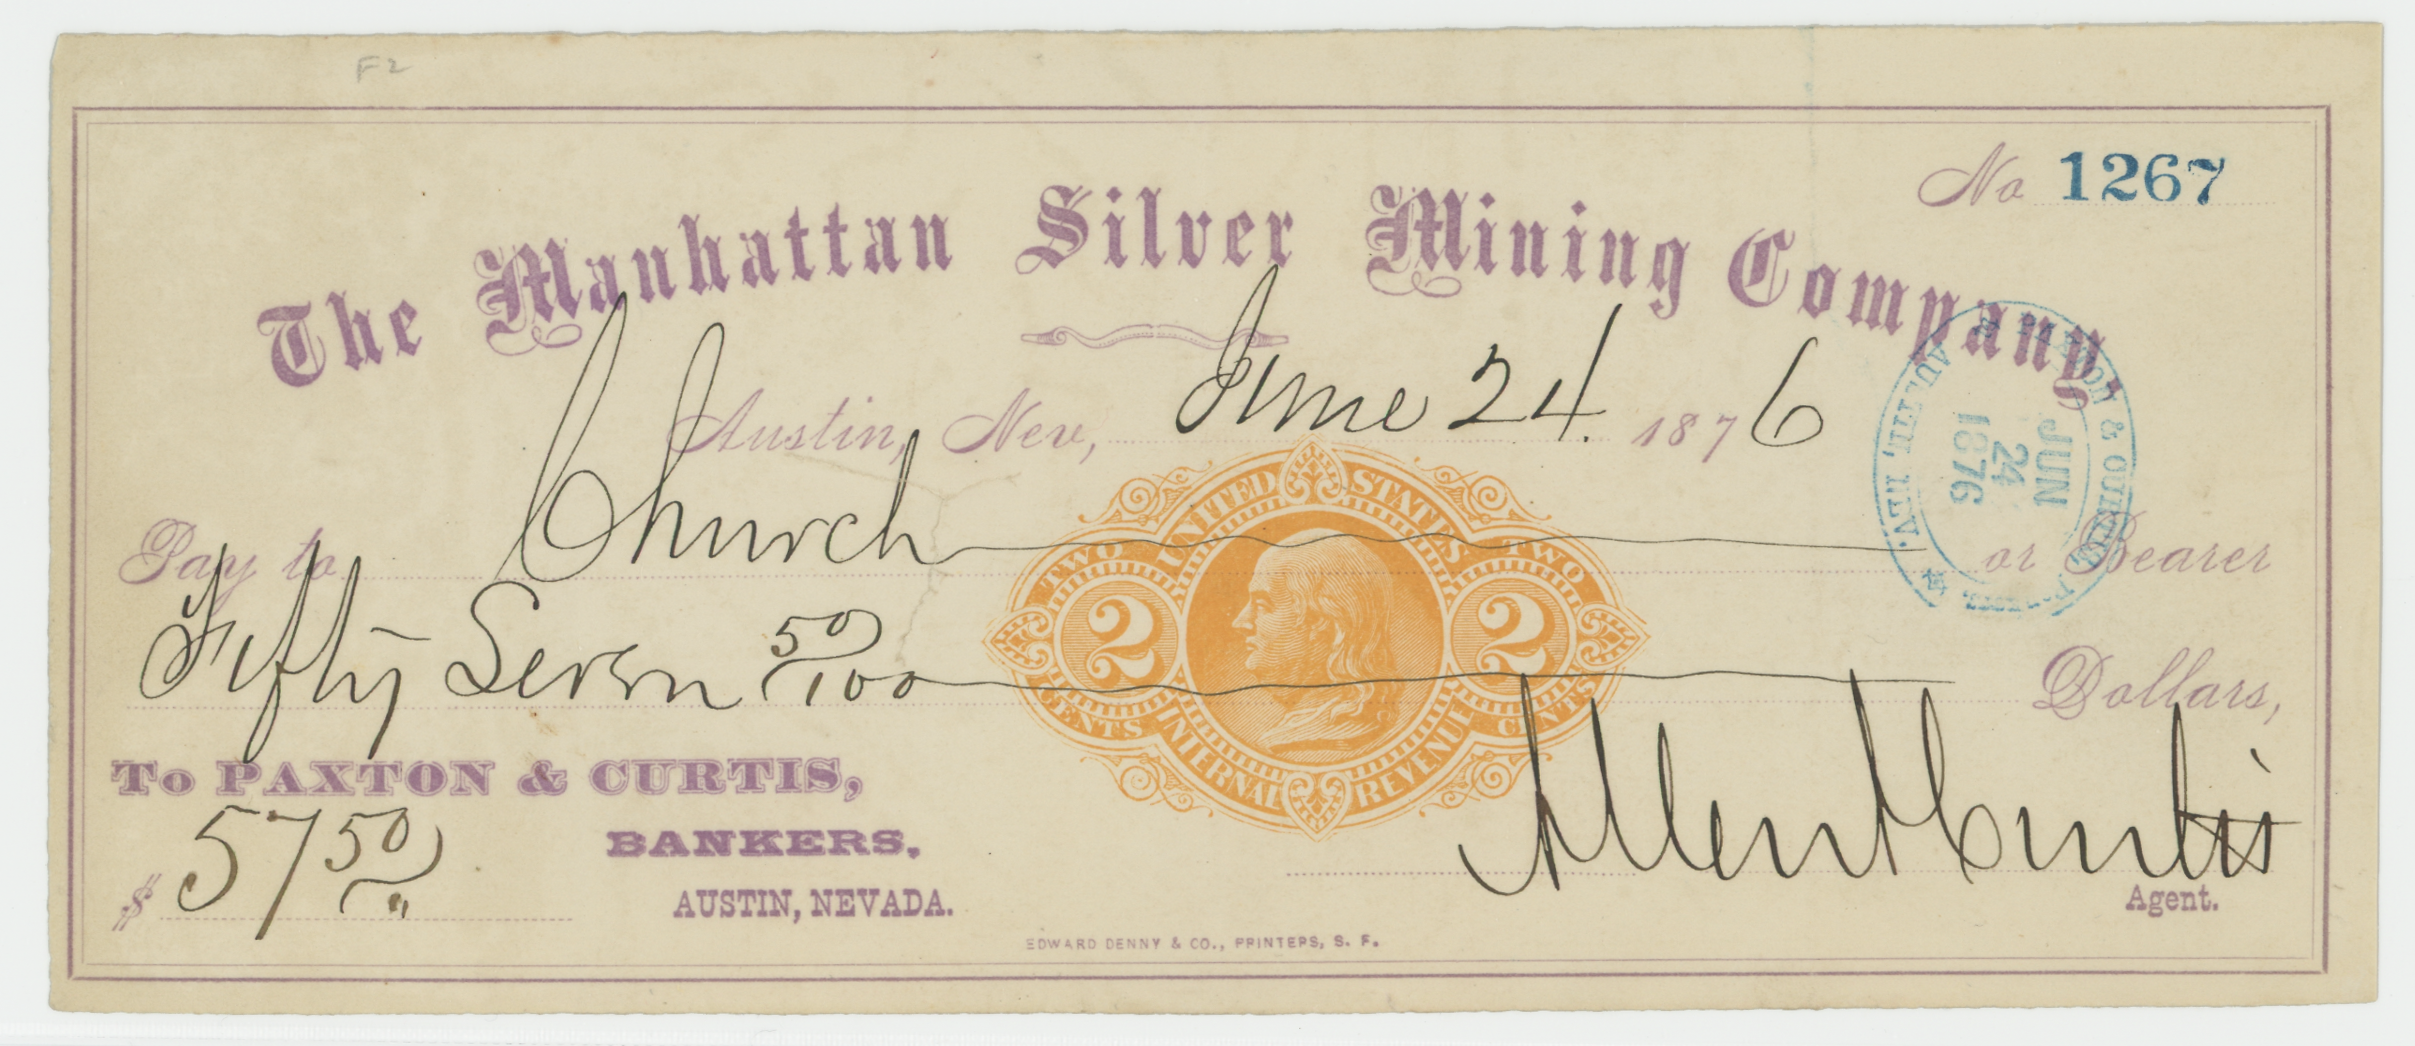 F2
No 1267
The Manhattan Silver Mining Company.
Austin, Nev, June 24. 1876
Pay to Church or Bearer
Fifty Seven 50/100 Dollars,
To PAXTON & CURTIS,
BANKERS,
AUSTIN, NEVADA.
$ 57 50/"
Allen A Curtis
Agent.
EDWARD DENNY & CO., PRINTERS, S. F.
UNITED STATES
INTERNAL REVENUE
TWO CENTS
2
TWO CENTS
2
PAXTON & CURTIS
JUN
24
1876
AUSTIN, NEV.